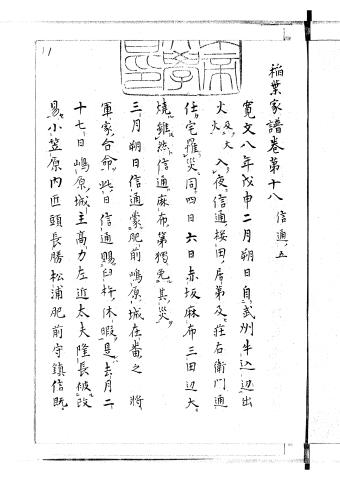 稲葉家譜巻第十八 信通 五
寛文八年戊申二月朔日自武州牛込辺出
火及大火入夜信通桜田居第及荘右衛門通
任宅罹災同四日六日赤坂麻布三田辺大
焼雖然信通麻布第獨免其災
三月朔日信通蒙肥前嶋原城在番之 将
軍家台命此日信通賜臼杵休暇是去月二
十七日嶋原城主高力左近太夫隆長被改
易小笠原内匠頭長勝松浦肥前守鎮信既